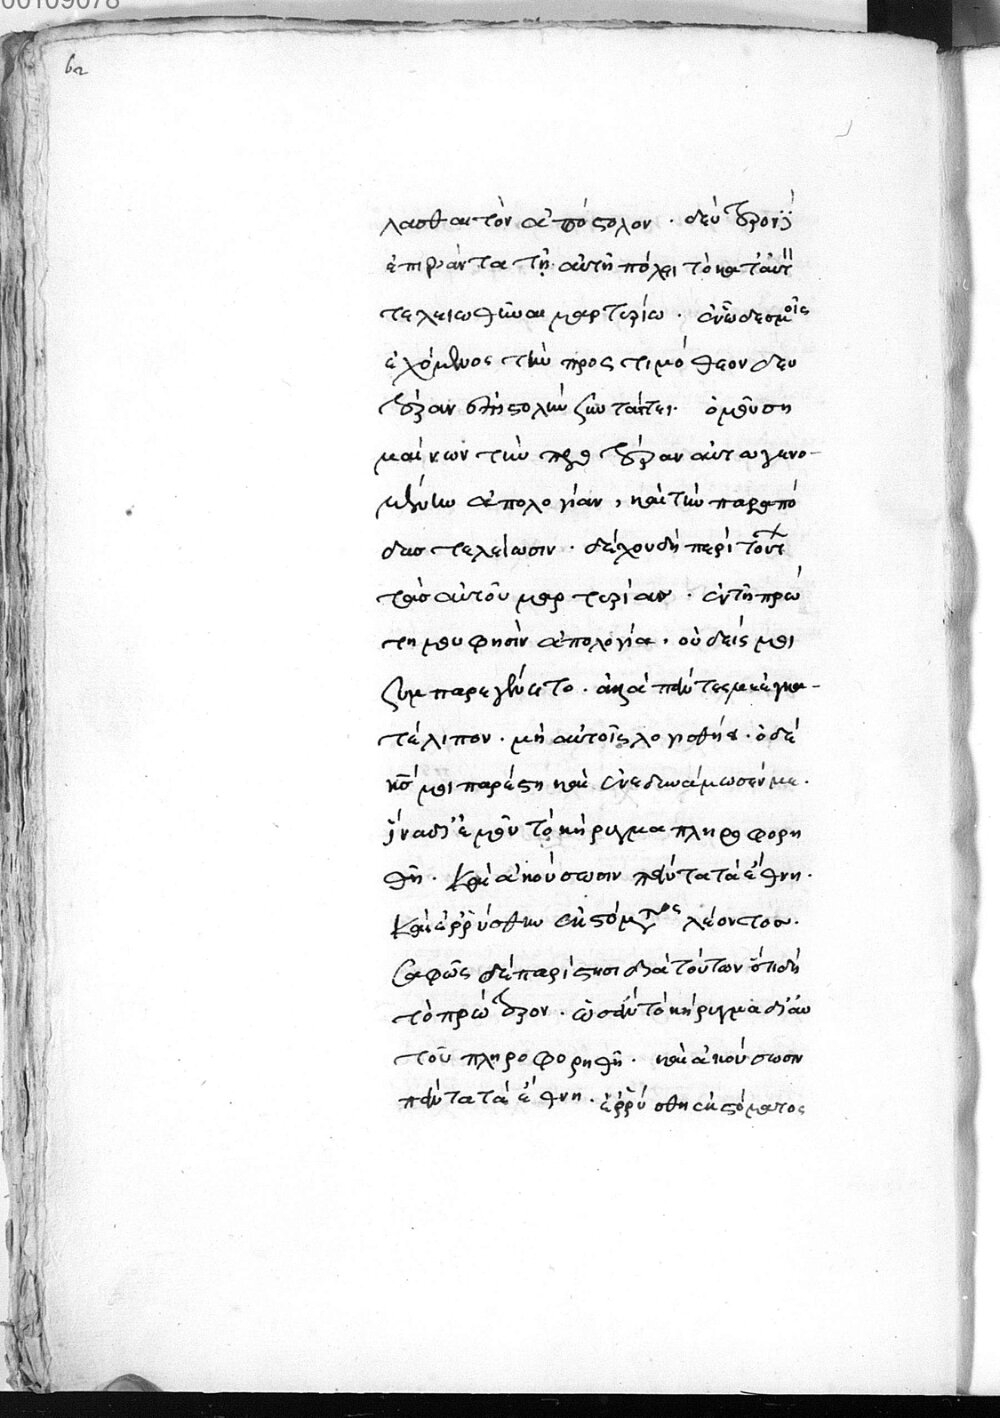 00109078
62
λασθαι τὸν ἀπόστολον · δεύτερον δ'
ἐπιβάντα τῇ αὐτῇ πόλει τῷ κατ' αὐτὸν
τελειωθῆναι μαρτυρίω · ἐν ὧ δεσμοῖς
ἐχόμενος τὴν πρὸς τιμόθεον δευ
τέραν ἐπιστολὴν συντάττει · ὁμοῦ ση
μαίνων τήν τε προτέραν αὐτῶ γενο-
μένην ἀπολογίαν, καὶ τὴν παραπό
δας τελείωσιν · δέχου δὴ περὶ τούτων
τὰς αὐτοῦ μαρτυρίας · ἐν τῇ πρώ
τη μου φησὶν ἀπολογία, οὐδείς μοι
συμπαρεγένετο · ἀλλὰ πάντες με ἐγκα-
τέλιπον · μὴ αὐτοῖς λογισθείη · ὁ δὲ
κς μοι παρέστη καὶ ἐνεδυνάμωσέν με ·
ἵνα δι' ἐμοῦ τὸ κήρυγμα πληροφορη
θῆ · καὶ ἀκούσωσιν πάντα τὰ ἔθνη ·
καὶ ἐρρύσθην ἐκ στόματος λέοντος ·
σαφῶς δὲ παρίστησι διὰ τούτων ὅτι δὴ
τὸ πρότερον · ὡς ἂν τὸ κήρυγμα δι' αὐ
τοῦ πληροφορηθῆ · καὶ ἀκούσωσιν
πάντα τὰ ἔθνη · ἐρρύσθη ἐκ στόματος